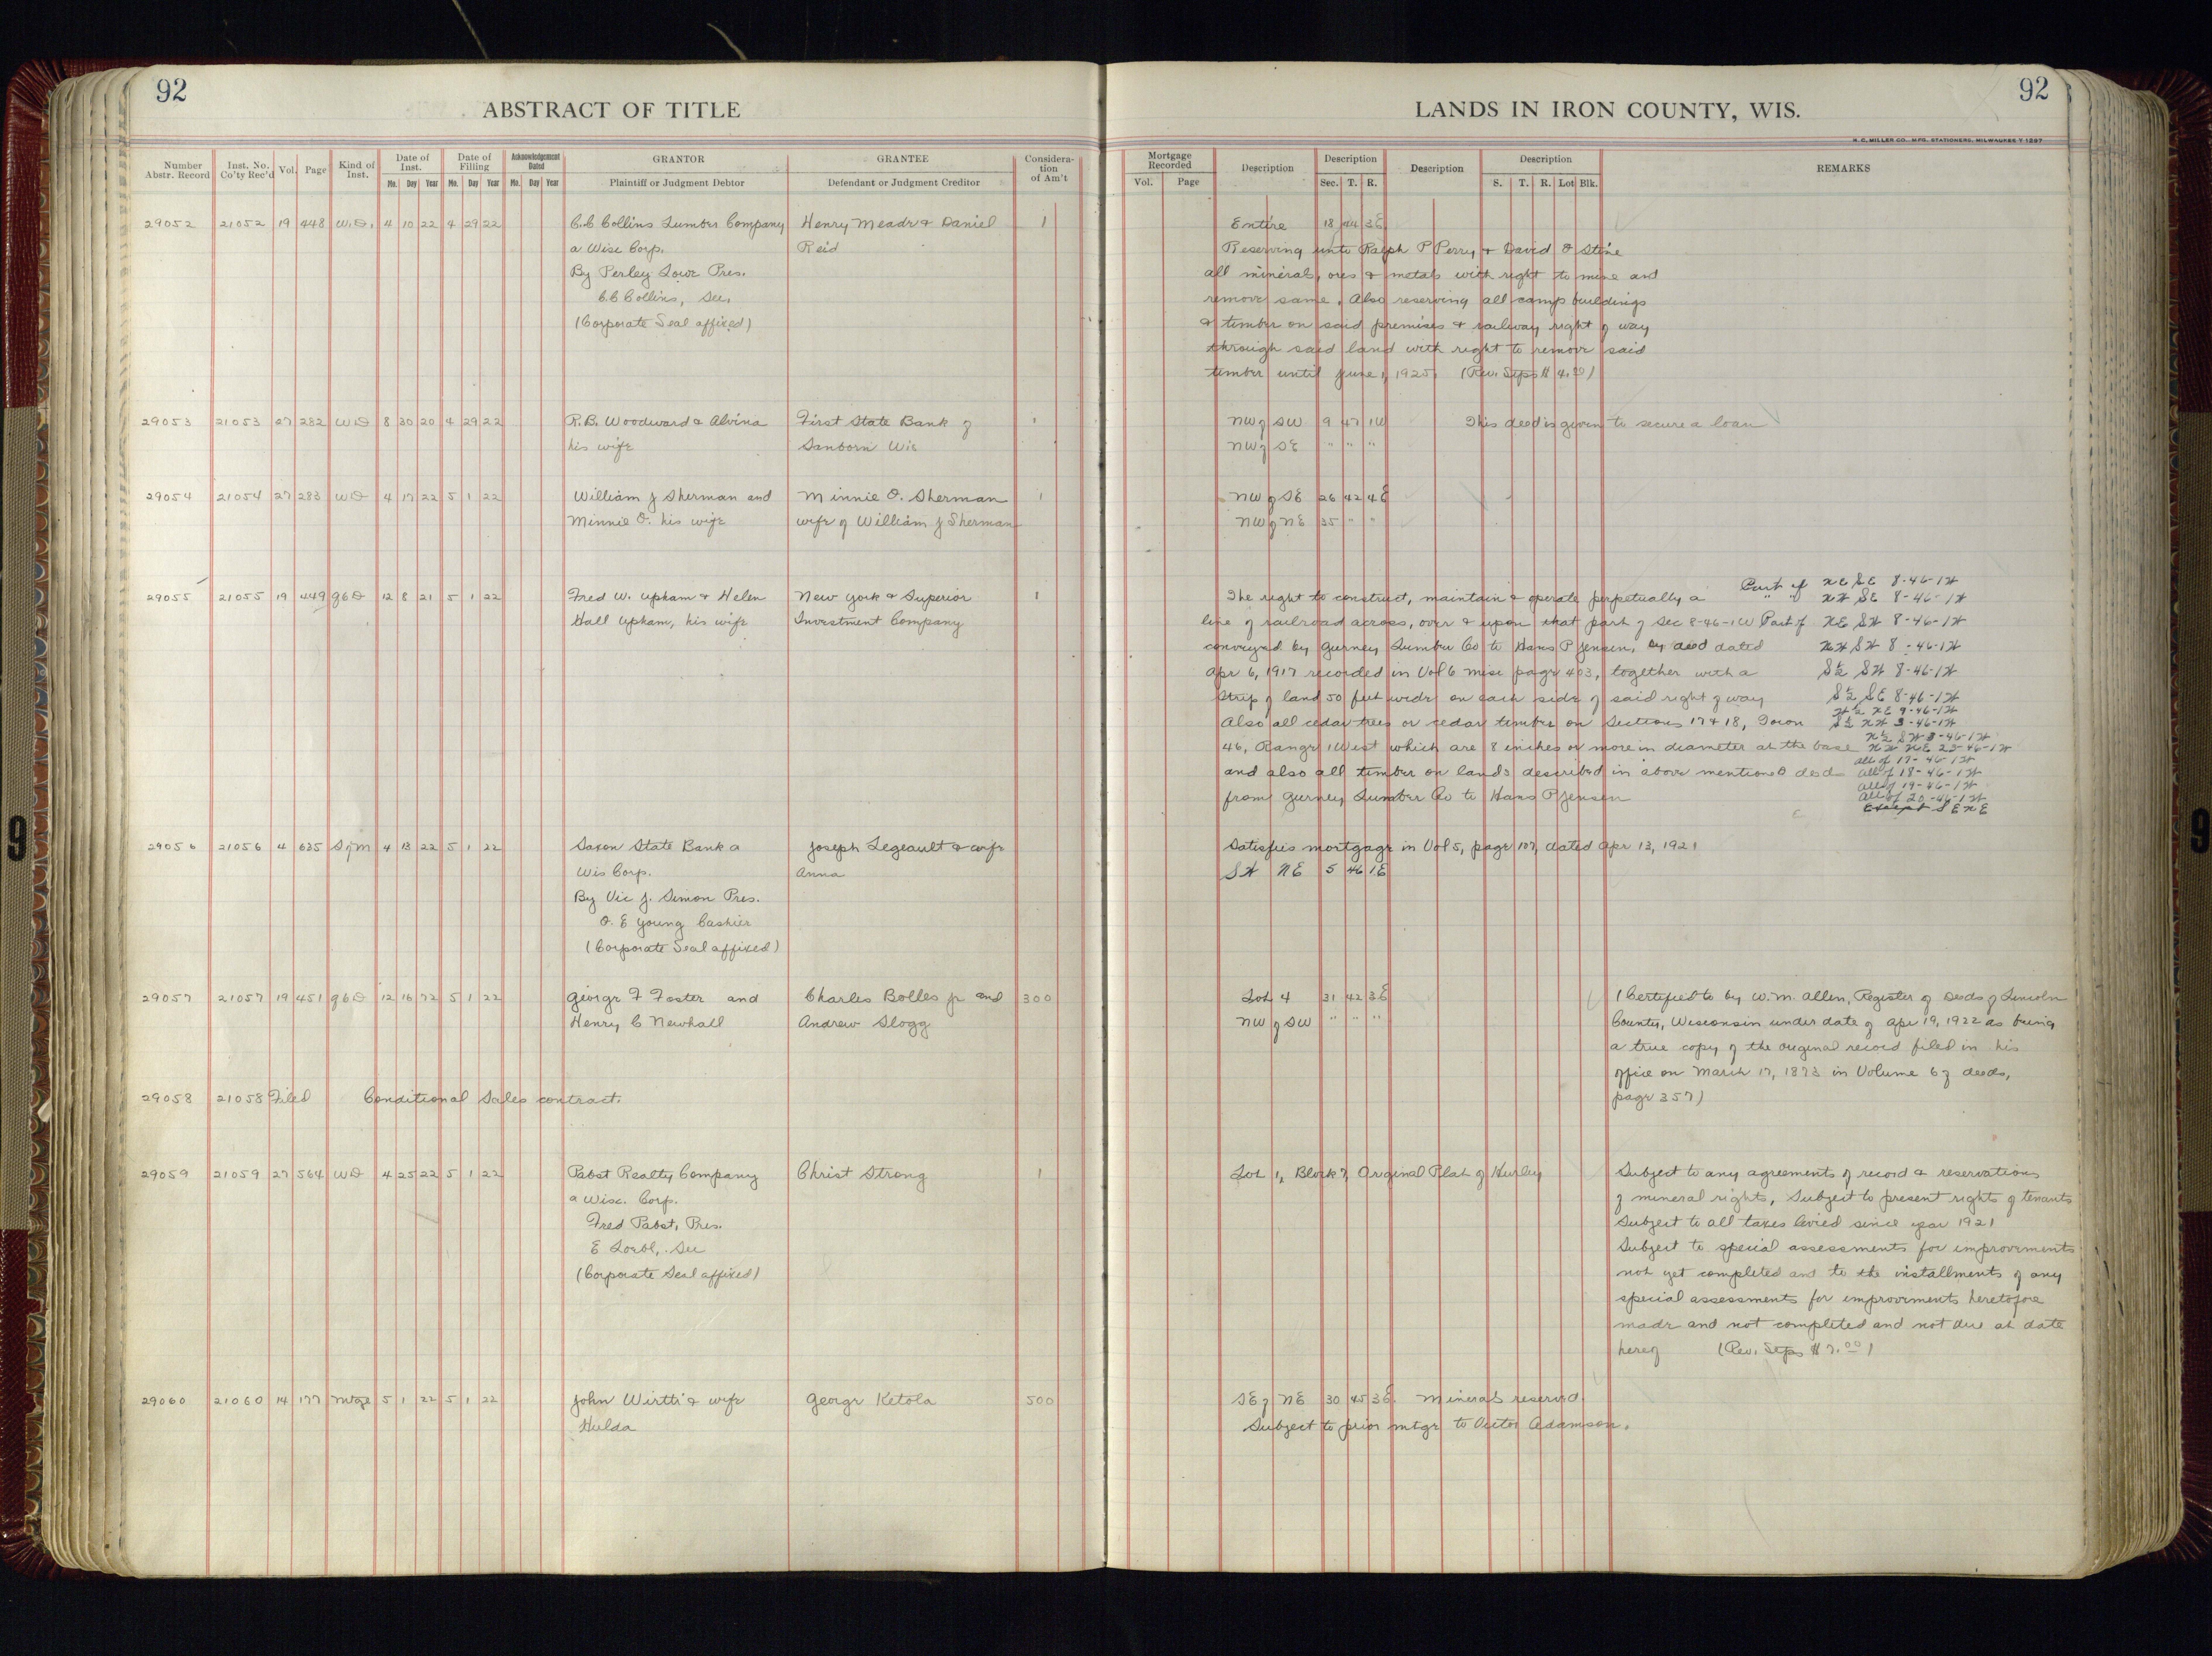 92
ABSTRACT OF TITLE
LANDS IN IRON COUNTY, WIS.
92
H. C. MILLER CO., MFG. STATIONERS, MILWAUKEE
Number Abstr. Record
Inst. No. Co'ty Rec'd
Vol.
Page
Kind of Inst.
Date of Inst.
Mo. Day Year
Date of Filling
Mo. Day Year
Acknowledgement Dated
Mo. Day Year
GRANTOR
Plaintiff or Judgment Debtor
GRANTEE
Defendant or Judgment Creditor
Considera-tion of Am't
Mortgage Recorded
Vol. Page
Description
Description
Sec. T. R.
Description
Description
S. T. R. Lot Blk.
REMARKS
29052 21052 19 448 W.D. 4 10 22 4 29 22 C.C Collins Lumber Company Henry Meade & Daniel 1 Entire 18 44 3E
a Wisc Corp. Reid Reserving unto Ralph P Perry & David O Stine
By Perley Lowe Pres. all minerals, ores & metals with right to mine and
C.C Collins, Sec. remove same. Also reserving all camp buildings
(Corporate Seal affixed) & timber on said premises & railway right of way
through said land with right to remove said
timber until June 1, 1925. (Rev. Stps $ 4.00)
29053 21053 27 282 WD 8 30 20 4 29 22 R.B. Woodward & Alvina First State Bank of 1 NW of SW 9 47 1W This deed is given to secure a loan
his wife Sanborn Wis NW of SE " " "
29054 21054 27 283 WD 4 17 22 5 1 22 William J Sherman and Minnie O. Sherman 1 NW of SE 26 42 4E
Minnie O. his wife wife of William J Sherman NW of NE 35 " "
29055 21055 19 449 QCD 12 8 21 5 1 22 Fred W. Upham & Helen New York & Superior 1 The right to construct, maintain & operate perpetually a Part of NE SE 8-46-1W
" " NW SE 8-46-1W
Hall Upham, his wife Investment Company line of railroad across, over & upon that part of Sec 8-46-1W Part of NE SW 8-46-1W
conveyed by Gurney Lumber Co to Hans P Jensen, by deed dated NW SW 8-46-1W
Apr 6, 1917 recorded in Vol 6 misc page 403, together with a S½ SW 8-46-1W
strip of land 50 feet wide on each side of said right of way S½ SE 8-46-1W
W½ NE 9-46-1W
Also all cedar trees or cedar timber on Sections 17 & 18, Town S½ NW 3-46-1W
N½ SW 3-46-1W
46, Range 1 West which are 8 inches or more in diameter at the base NW NE 23-46-1W
all of 17-46-1W
and also all timber on lands described in above mentioned deed all of 18-46-1W
all of 19-46-1W
from Gurney Lumber Co to Hans P Jensen All of 20-46-1W
Except SE NE
29056 21056 4 635 S of M 4 13 22 5 1 22 Saxon State Bank a Joseph Legeault & wife Satisfies mortgage in Vol 5, page 107, dated Apr 13, 1921
Wis Corp. Anna SW NE 5 46 1E
By Vic J. Simon Pres.
O. E Young Cashier
(Corporate Seal affixed)
29057 21057 19 451 QCD 12 16 72 5 1 22 George F Foster and Charles Bolles Jr and 300 Lot 4 31 42 3E (Certified to by W.M. Allen, Register of Deeds of Lincoln
Henry C Newhall Andrew Slogg NW of SW " " " County, Wisconsin under date of Apr 19, 1922 as being
a true copy of the original record filed in his
office on March 17, 1873 in Volume 6 of deeds,
29058 21058 Filed Conditional Sales contract. page 357)
29059 21059 27 564 WD 4 25 22 5 1 22 Pabst Realty Company Christ Strong 1 Lot 1, Block 7, Original Plat of Hurley Subject to any agreements of record & reservations
a Wisc. Corp. of mineral rights, Subject to present rights of tenants
Fred Pabst, Pres. Subject to all taxes levied since year 1921
E Loebl, Sec Subject to special assessments for improvements
(Corporate Seal affixed) not yet completed and to the installments of any
special assessments for improvements heretofore
made and not completed and not due at date
hereof (Rev. Stps $ 7.00)
29060 21060 14 177 Mtge 5 1 22 5 1 22 John Wirtti & wife George Ketola 500 SE of NE 30 45 3E. Minerals reserved.
Hulda Subject to prior mtge to Victor Adamson.
9
9